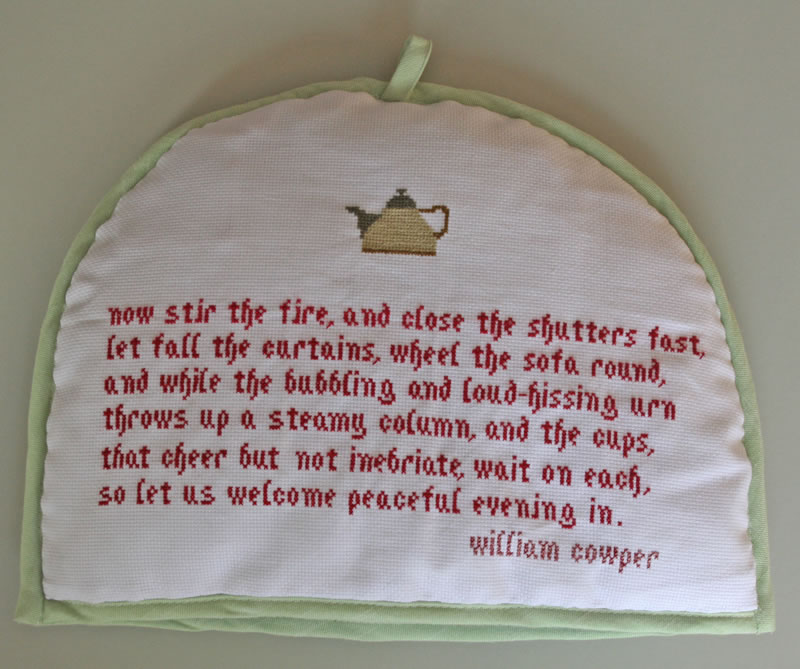 now stir the fire, and close the shutters fast,
let fall the curtains, wheel the sofa round,
and while the bubbling and loud-hissing urn
throws up a steamy column, and the cups,
that cheer but not inebriate, wait on each,
so let us welcome peaceful evening in.
william cowper